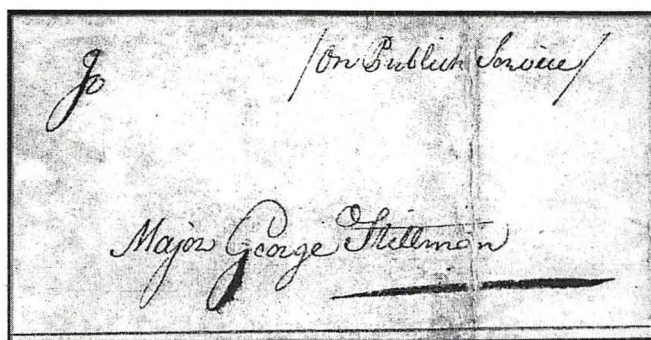 To /On Publick Service/
Major George Stillman